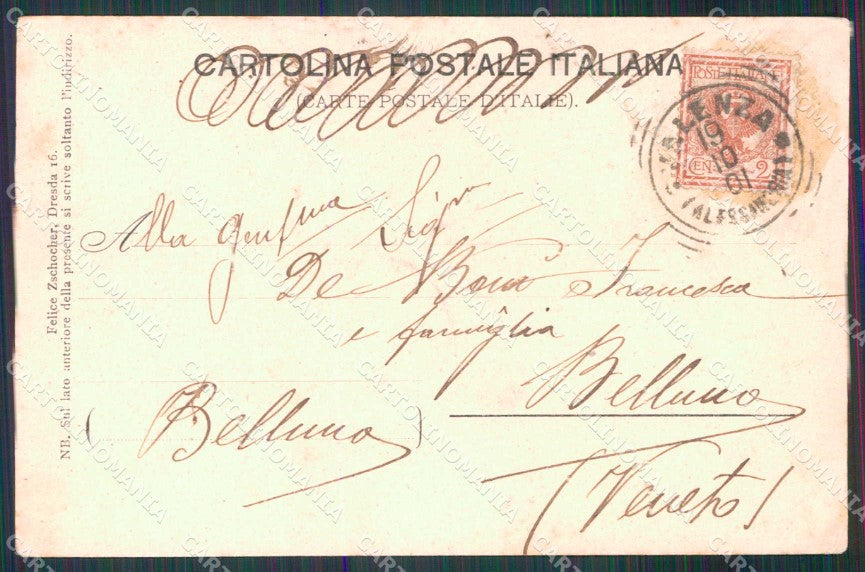 CARTOLINA POSTALE ITALIANA
(CARTE POSTALE D'ITALIE).
POSTE ITALIANE
CENT. 2
VALENZA
19
10
01
(ALESSANDRIA)
Alla gentma Sigra
De Francesca
e famiglia
Belluno
(Veneto)
( Belluno )
Felice Zschocher, Dresda 16.
NB. Sul lato anteriore della presente si scrive soltanto l'indirizzo.
CARTOLINOMANIA